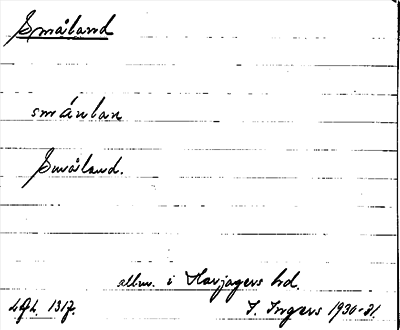 Småland
smánlan
Småland.
allm. i Harjagers hd.
LAL. 1317. I. Ingers 1930-31.